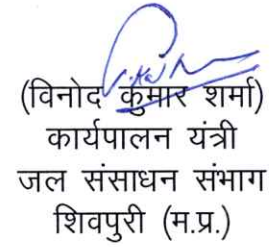 (विनोद कुमार शर्मा)
कार्यपालन यंत्री
जल संसाधन संभाग
शिवपुरी (म.प्र.)